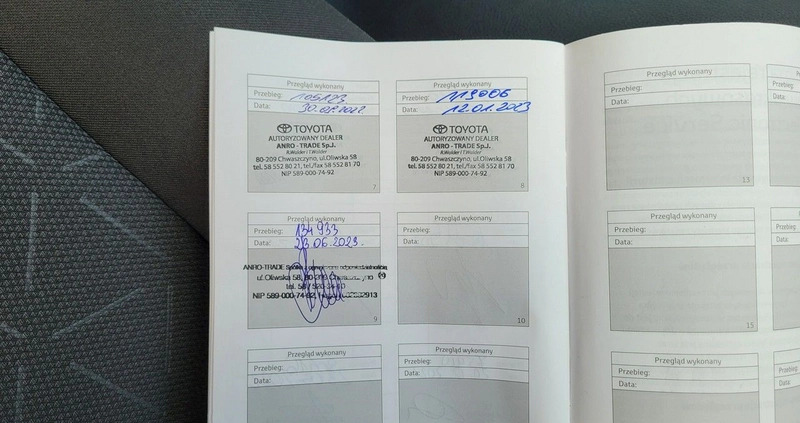 Przegląd wykonany
Przebieg: 105123
Data: 30.05.2022
TOYOTA
AUTORYZOWANY DEALER
ANRO - TRADE Sp.J.
R.Walder i T.Walder
80-209 Chwaszczyno, ul.Oliwska 58
tel. 58 552 80 21, tel./fax 58 552 81 70
NIP 589-000-74-92
7
Przegląd wykonany
Przebieg: 119006
Data: 12.01.2023
TOYOTA
AUTORYZOWANY DEALER
ANRO - TRADE Sp.J.
R.Walder i T.Walder
80-209 Chwaszczyno, ul.Oliwska 58
tel. 58 552 80 21, tel./fax 58 552 81 70
NIP 589-000-74-92
8
Przegląd wykonany
Przebieg: 134 933
Data: 23 06.2023.
ANRO-TRADE Spółka z ograniczoną odpowiedzialnością
ul. Oliwska 58, 80-209 Chwaszczyno
tel. 58
NIP 589-000-74-92,
9
Przegląd wykonany
Przebieg:
Data:
10
Przegląd wykonany
Przebieg:
Data:
Przegląd wykonany
Przebieg:
Data:
Przegląd wykonany
Przebieg:
Data:
13
Przebieg:
Data:
Przegląd wykonany
Przebieg:
Data:
15
Przebieg:
Data:
Przegląd wykonany
Przebieg:
Data:
Przebieg:
Data: